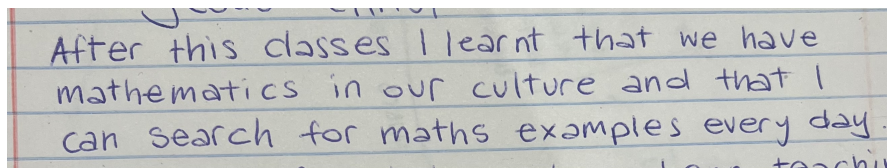 After this classes I learnt that we have
mathematics in our culture and that I
can search for maths examples every day.